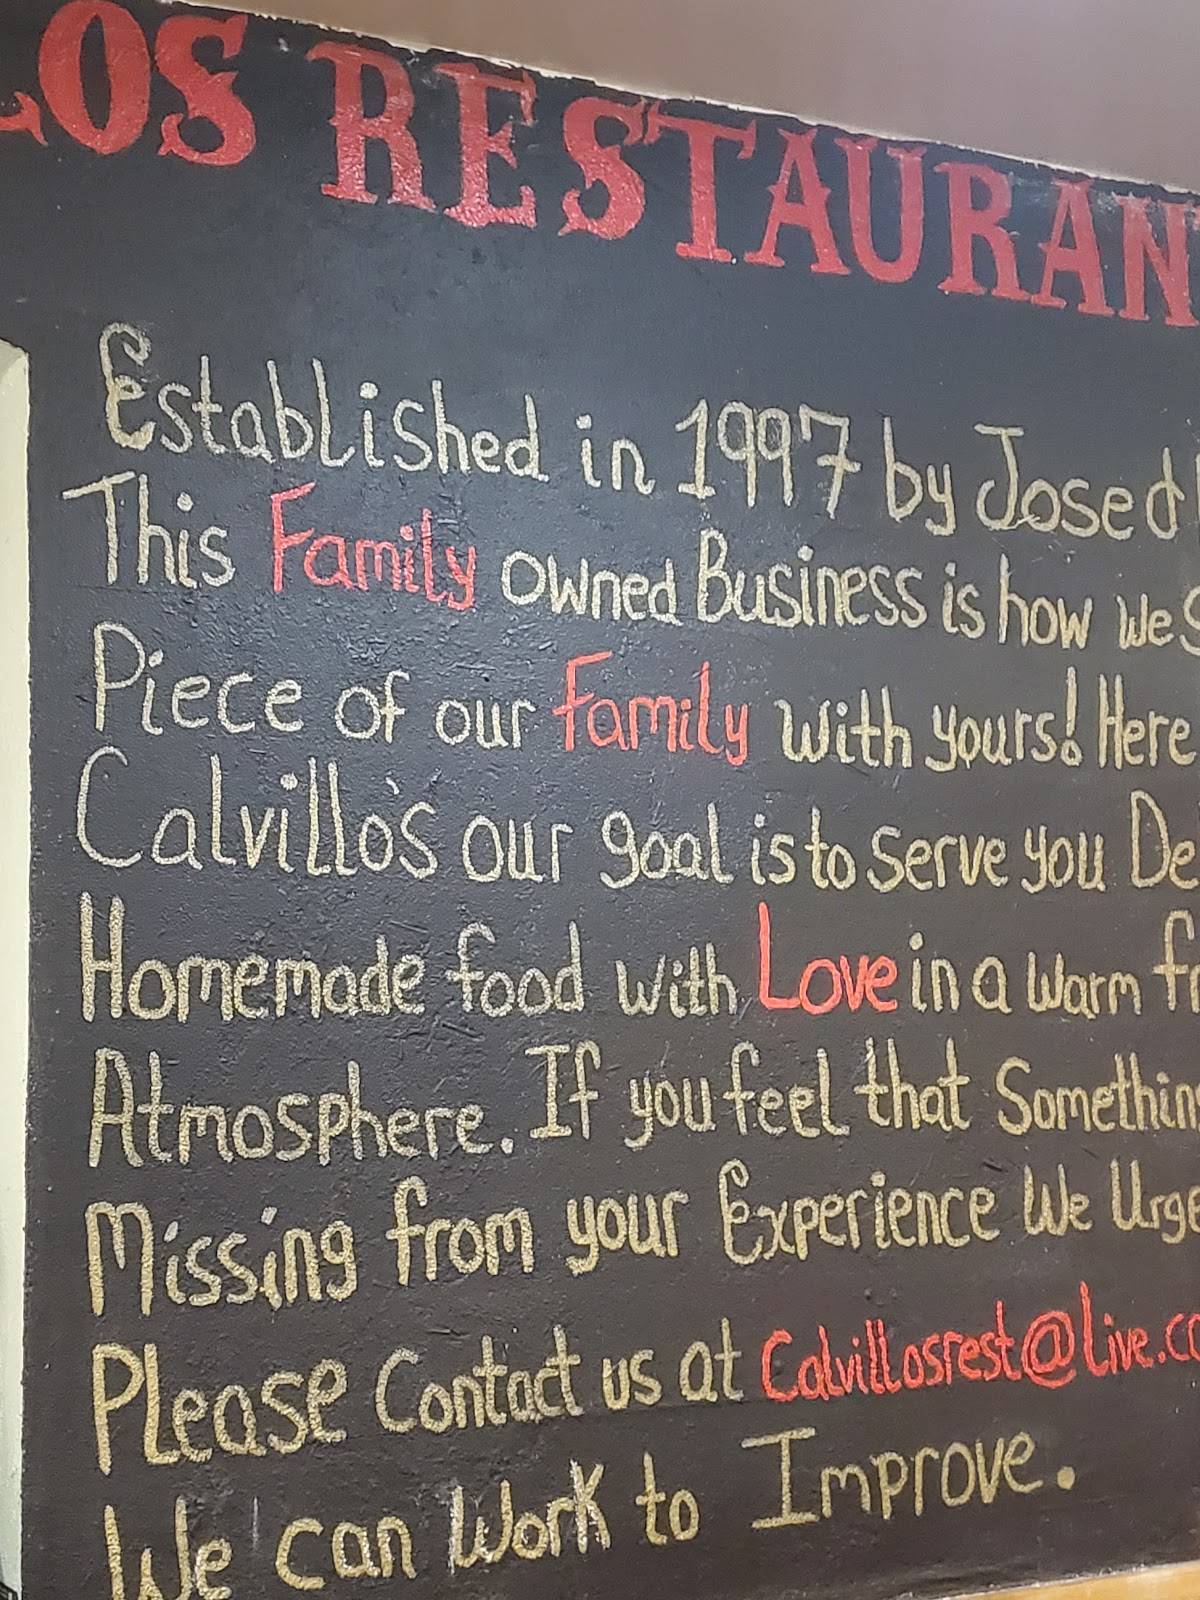 LOS RESTAURAN
Established in 1997 by Jose
This Family owned Business is how we
Piece of our Family with yours! Here
Calvillo's our goal is to serve you De
Homemade food with Love in a warm fr
Atmosphere. If you feel that Somethin
Missing from your Experience We Urge
Please Contact us at Calvillosrest@live.co
We can Work to Improve.